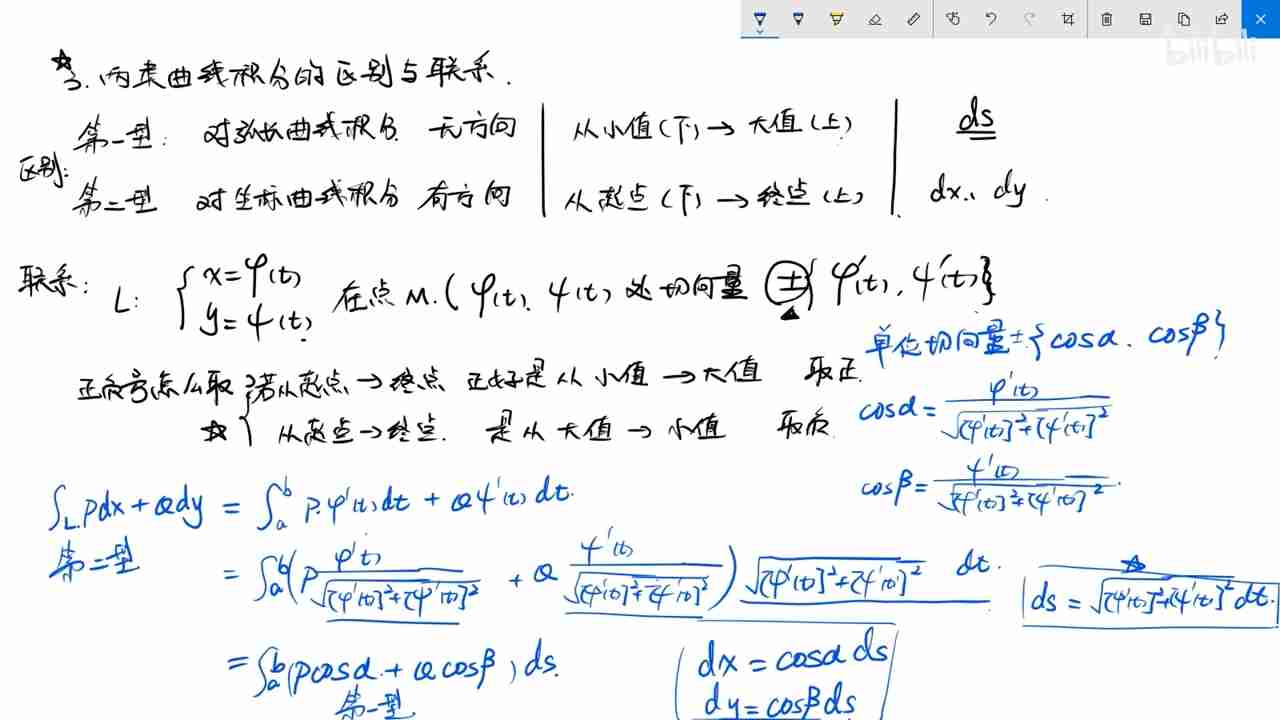 bilibili
☆3. 两类曲线积分的区别与联系.
区别: 第一型: 对弧长曲线积分. 无方向 | 从小值(下)→大值(上) | ds
第二型 对坐标曲线积分 有方向 | 从起点(下)→终点(上) | dx., dy.
联系: L: { x=φ(t) y=ψ(t) 在点 M.(φ(t), ψ(t) 处切向量 ±{φ'(t), ψ'(t)}
单位切向量 ±{cosα. cosβ}
正负号怎么取 { 若从起点→终点 正好是从小值→大值 取正.
☆ 从起点→终点. 是从大值→小值 取负.
cosα = φ'(t) / √([φ'(t)]²+[ψ'(t)]²)
cosβ = ψ'(t) / √([φ'(t)]²+[ψ'(t)]²)
∫_L Pdx+Qdy = ∫_a^b P.φ'(t)dt + Qψ'(t)dt.
第二型
= ∫_a^b (P φ'(t)/√([φ'(t)]²+[ψ'(t)]²) + Q ψ'(t)/√([φ'(t)]²+[ψ'(t)]²)) √([φ'(t)]²+[ψ'(t)]²) dt.
☆ ds = √([φ'(t)]²+[ψ'(t)]²) dt.
= ∫_a^b (Pcosα + Qcosβ) ds.
第一型
dx = cosα ds
dy = cosβ ds